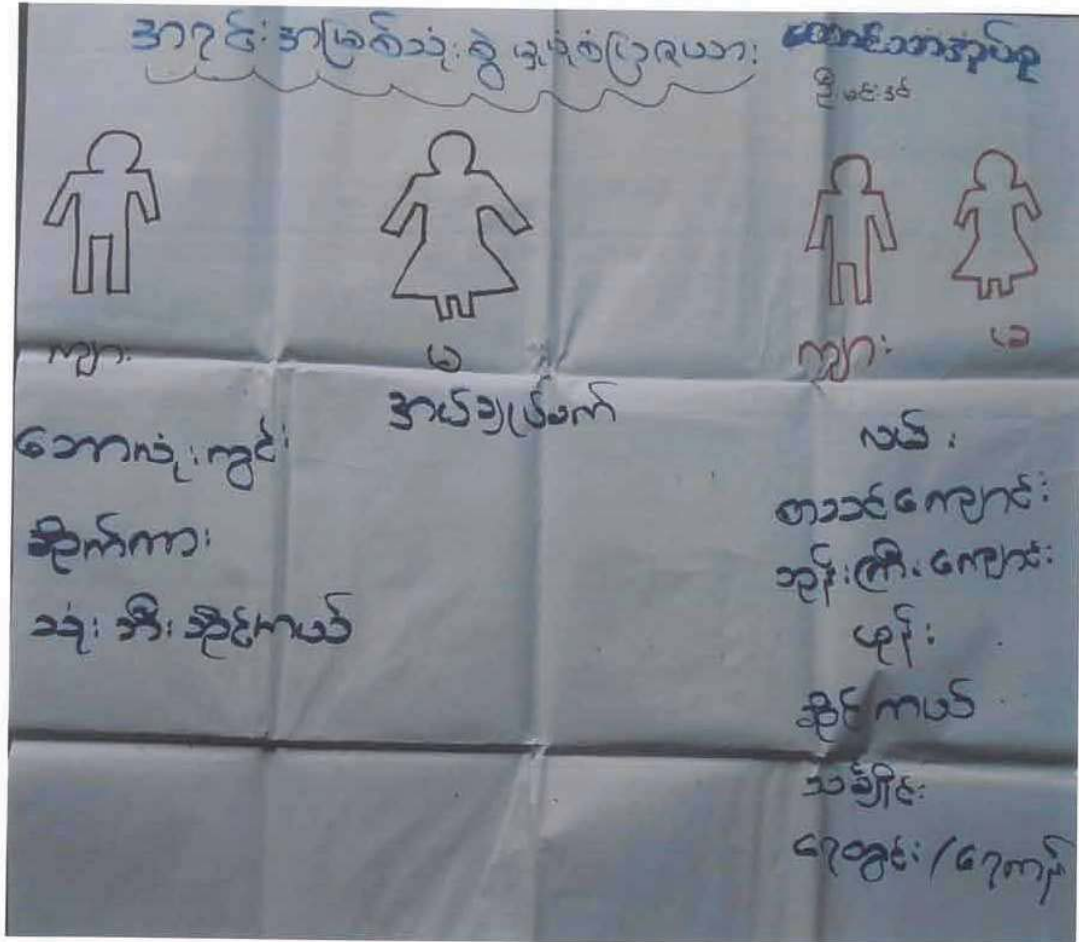 အရင်းအမြစ်သုံးစွဲမှုပုံစံပြဇယား တောင်သာအုပ်စု
ဦးမင်းဒင်
ကျား
မ
ကျား
မ
အယ်ချယ်ဖက်
ဘောလုံးကွင်း
ဆိုက်ကား
သုံးဘီးဆိုင်ကယ်
လယ်
စာသင်ကျောင်း
ဘုန်းကြီးကျောင်း
ဖုန်း
ဆိုင်ကယ်
သချိုင်း
ရေတွင်း/ရေကန်